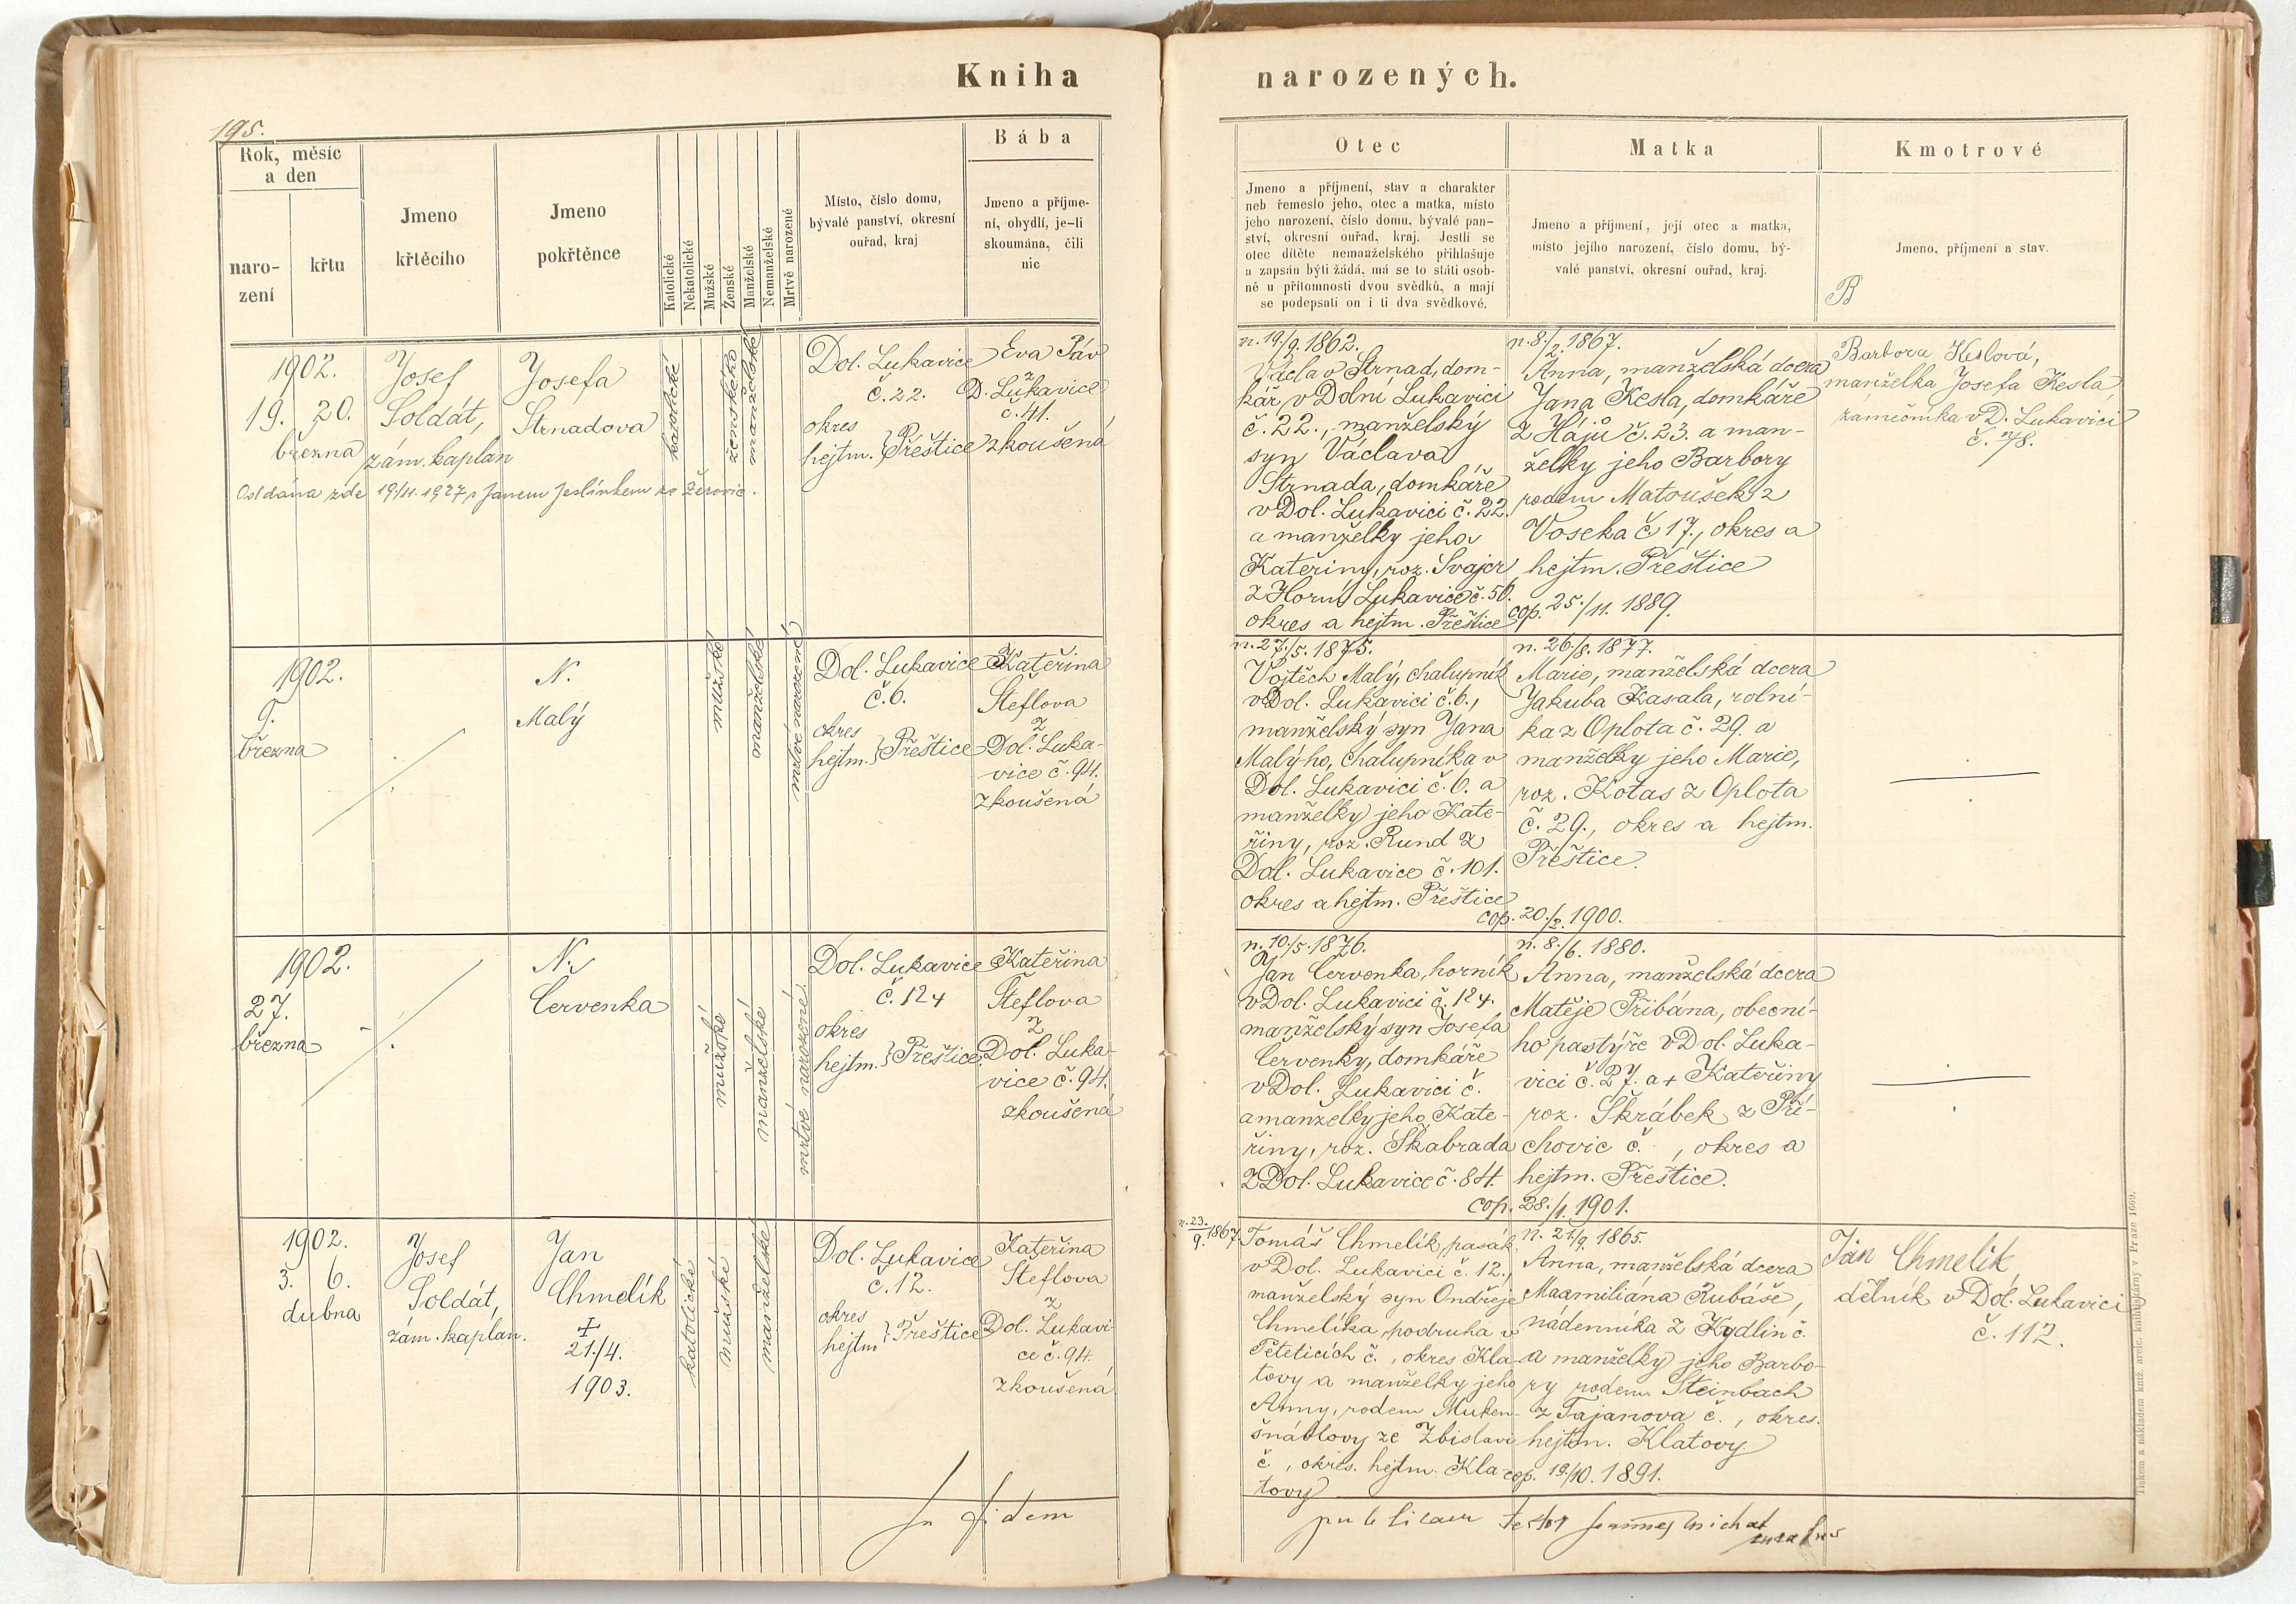 Kniha
narozených.
195.
Rok, měsíc
a den
naro-
zení
křtu
Jmeno
křtěcího
Jmeno
pokřtěnce
Katolické
Nekatolické
Mužské
Ženské
Manželské
Nemanželské
Mrtvě narozené
Místo, číslo domu,
bývalé panství, okresní
ouřad, kraj
Bába
Jmeno a příjme-
ní, obydlí, je-li
skoumána, čili
nic
Otec
Jmeno a příjmení, stav a charakter
neb řemeslo jeho, otec a matka, místo
jeho narození, číslo domu, bývalé pan-
ství, okresní ouřad, kraj. Jestli se
otec dítěte nemanželského přihlašuje
a zapsán býti žádá, má se to státi osob-
ně u přítomnosti dvou svědků, a mají
se podepsati on i ti dva svědkové.
Matka
Jmeno a příjmení, její otec a matka,
místo jejího narození, číslo domu, bý-
valé panství, okresní ouřad, kraj.
Kmotrové
Jmeno, příjmení a stav.
B
1902.
19. 20.
března
Josef
Soldát,
zám. kaplan
Josefa
Strnadova
Oddána zde 19/11.1927 s Janem Jeslínkem ze Žerovic.
katolické
ženského
manželské
Dol. Lukavice
č. 22.
okres
hejtm. } Přeštice
Eva Páv
z
D. Lukavice
č. 41.
zkoušená
n. 19./9. 1862.
Václav Strnad, dom-
kář v Dolní Lukavici
č. 22., manželský
syn Václava
Strnada, domkáře
v Dol. Lukavici č. 22.
a manželky jeho
Kateřiny, roz. Svajer
z Horní Lukavice č. 50.
okres a hejtm. Přeštice
n. 8./2. 1867.
Anna, manželská dcera
Jana Kesla, domkáře
z Hájů č. 23. a man-
želky jeho Barbory
rodem Matoušek z
Voseka č 17., okres a
hejtm. Přeštice
cop. 25./11. 1889.
Barbora Keslová,
manželka Josefa Kesla,
zámečníka v D. Lukavici
č. 78.
1902.
9.
března
N.
Malý
mužské
manželské
mrtvě narozené
Dol. Lukavice
č. 6.
okres
hejtm. } Přeštice
Kateřina
Šteflova
z
Dol. Luka-
vice č. 94.
zkoušená
n. 27./5. 1875.
Vojtěch Malý, chalupník
v Dol. Lukavici č. 6.,
manželský syn Jana
Malýho, chalupníka v
Dol. Lukavici č. 6. a
manželky jeho Kate-
řiny, roz. Rund z
Dol. Lukavice č. 101.
okres a hejtm. Přeštice
n. 26./8. 1877.
Marie, manželská dcera
Jakuba Kasala, rolní-
ka z Oplota č. 29. a
manželky jeho Marie,
roz. Kotas z Oplota
č. 29., okres a hejtm.
Přeštice.
cop. 20./2. 1900.
1902.
27.
března
N.
Červenka
mužské
manželské
mrtvé narozené.
Dol. Lukavice
č. 124
okres
hejtm. } Přeštice
Kateřina
Šteflova
z
Dol. Luka-
vice č. 94.
zkoušená
n. 10./5. 1876.
Jan Červenka, horník
v Dol. Lukavici č. 124.
manželský syn Josefa
Červenky, domkáře
v Dol. Lukavici č.
a manželky jeho Kate-
řiny, roz. Škabrada
z Dol. Lukavice č. 84.
n. 8./6. 1880.
Anna, manželská dcera
Matěje Přibána, obecní-
ho pastýře v Dol. Luka-
vici č. 27. a + Kateřiny
roz. Škrábek z Pří-
chovic č. , okres a
hejtm. Přeštice.
cop. 28./1. 1901.
1902.
3. 6.
dubna
Josef
Soldát,
zám. kaplan.
Jan
Chmelík
+
21./4.
1903.
katolické
mužské
manželské
Dol. Lukavice
č. 12.
okres
hejtm } Přeštice
Kateřina
Šteflova
z
Dol. Lukavi-
ce č. 94.
zkoušená
n. 23./9. 1867.
Tomáš Chmelík, pasák
v Dol. Lukavici č. 12.,
manželský syn Ondřeje
Chmelíka, podruha v
Těteticích č. , okres Kla-
tovy a manželky jeho
Anny, rodem Muken-
šnáblovy ze Zbislavi
č. , okres. hejtm. Kla-
tovy
n. 21./9. 1865.
Anna, manželská dcera
Maxmiliána Rubáše,
nádenníka z Kydlin č.
a manželky jeho Barbo-
ry rodem Steinbach
z Tajanova č. , okres.
hejtm. Klatovy
cop. 19./10. 1891.
Jan Chmelík,
dělník v Dol. Lukavici
č. 112.
In fidem
publicam testor
Tiskem a nákladem kníž. arcib. knihtiskárny v Praze 1660.